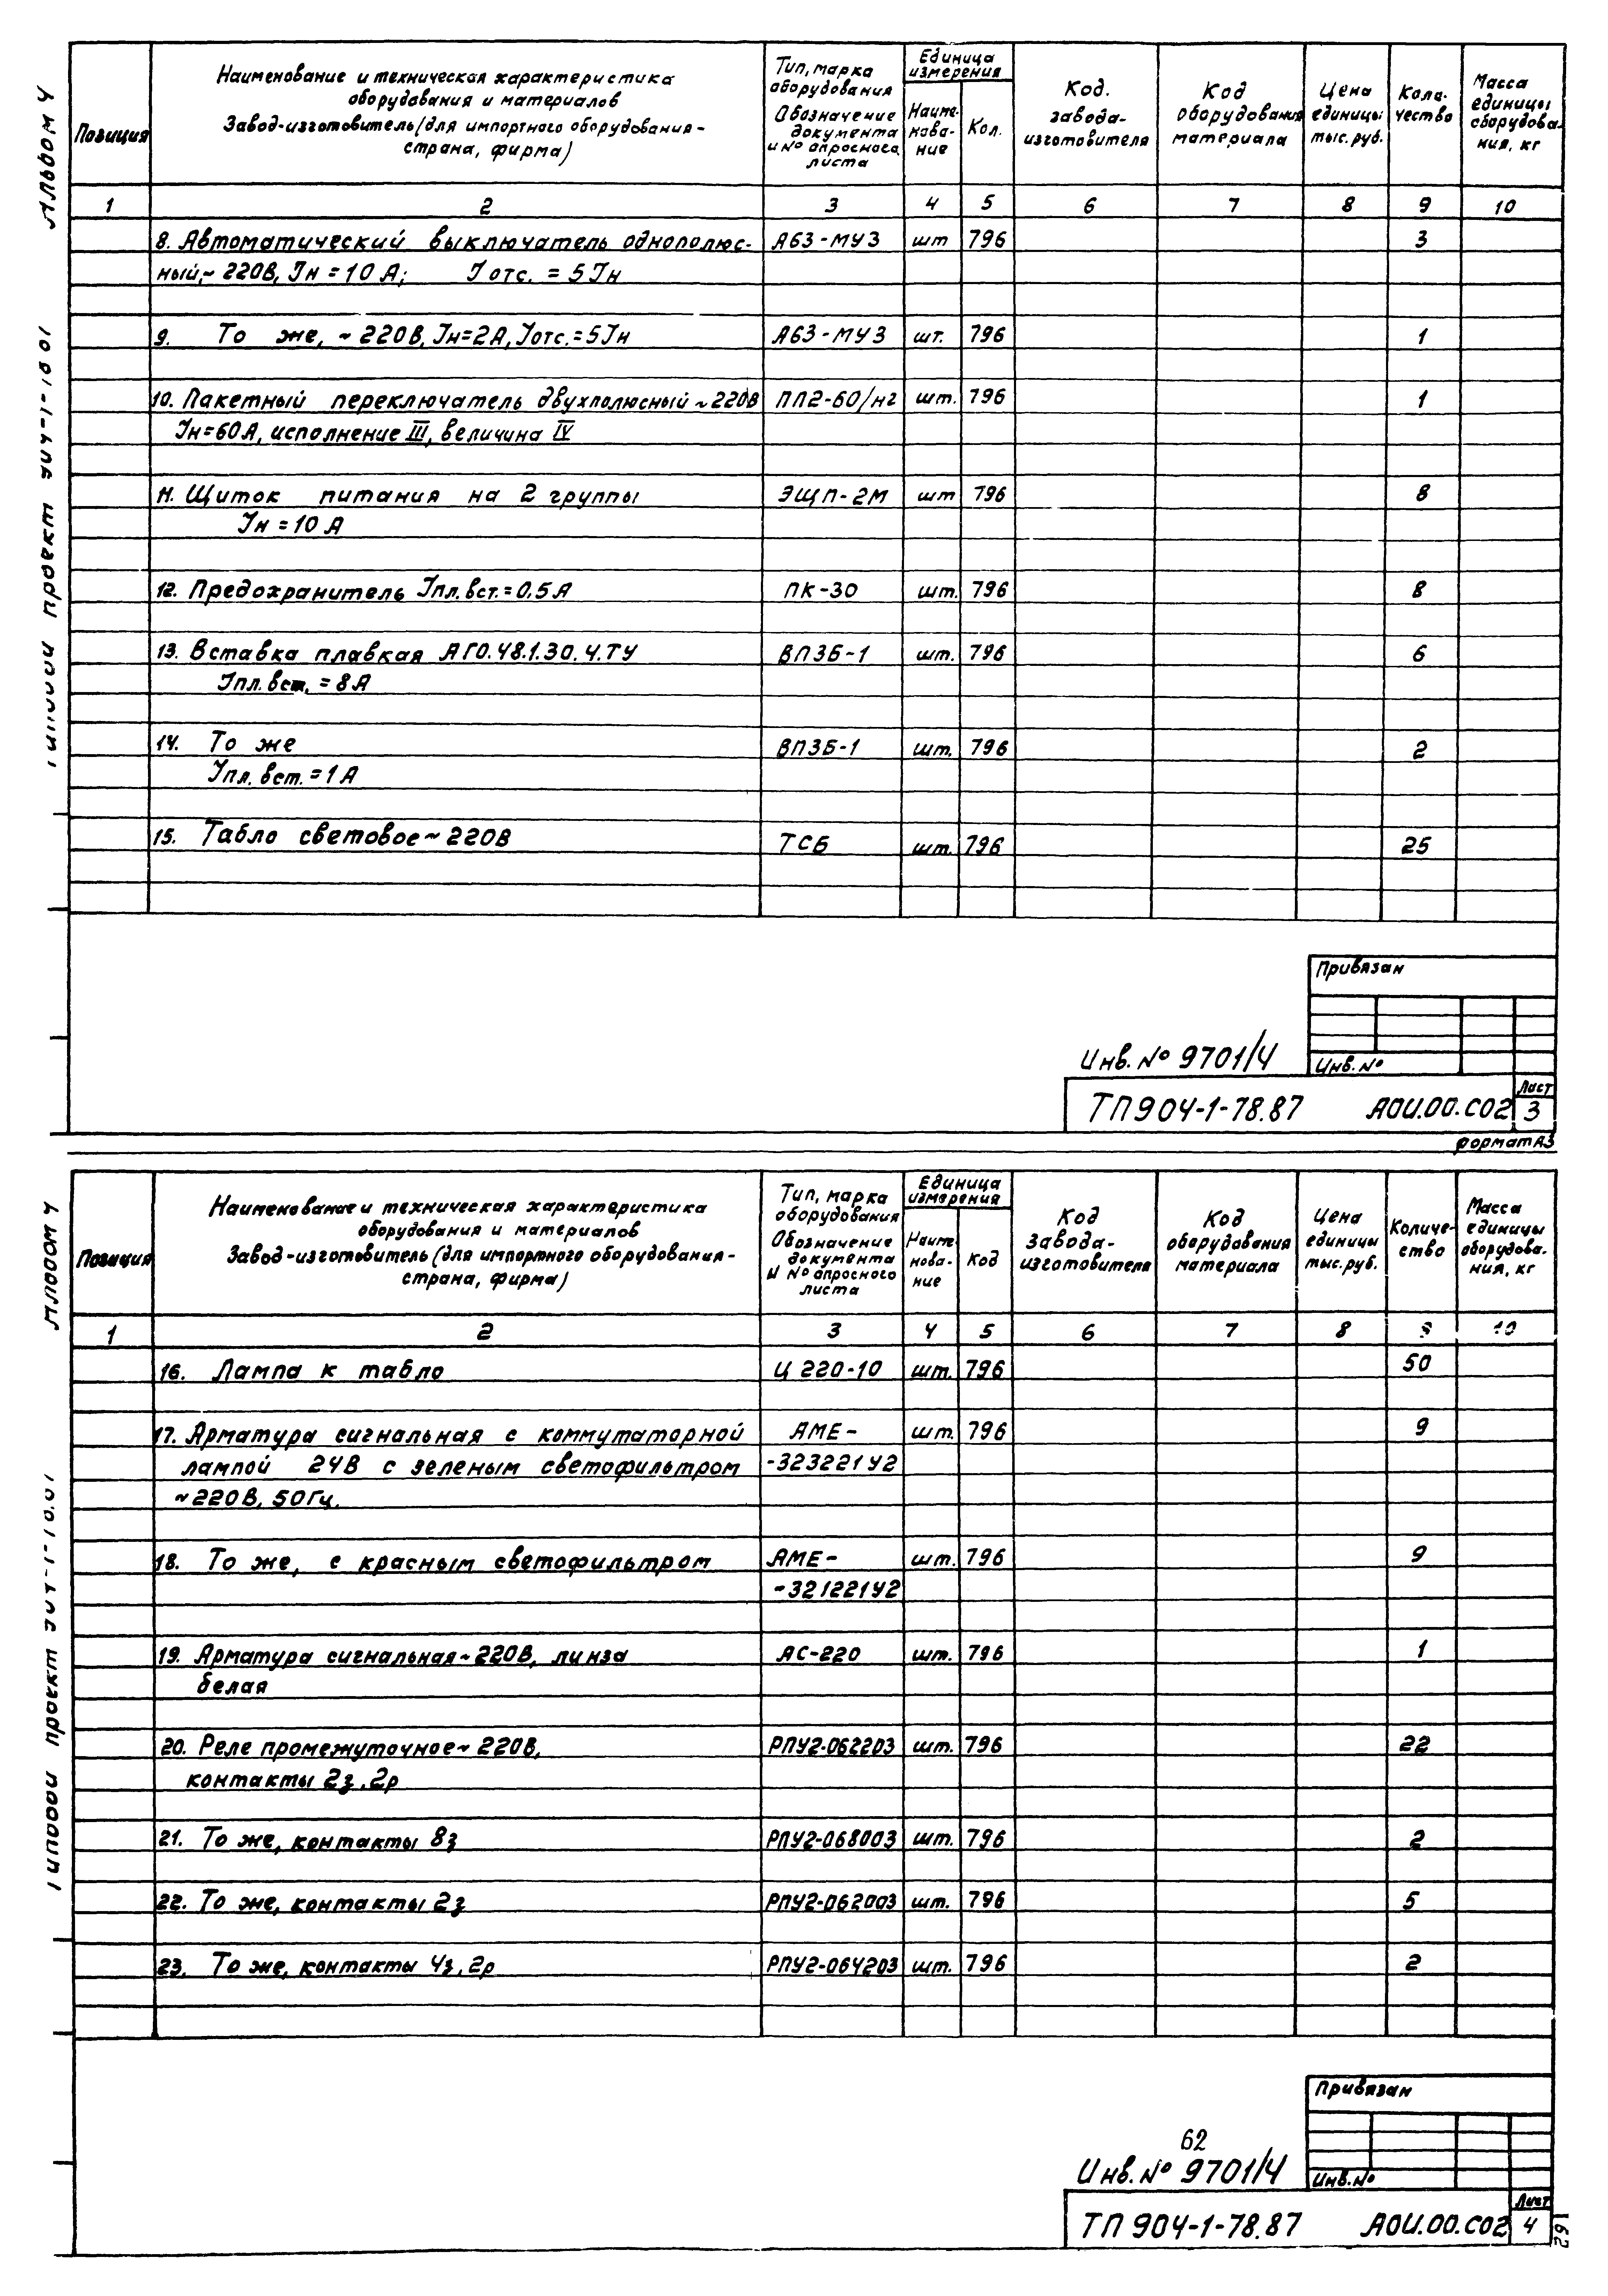 Альбом 4
Типпол проект 904-1-78.87
Позиция
Наименование и техническая характеристика
оборудования и материалов
Завод-изготовитель (для импортного оборудования-
страна, фирма)
Тип, марка
оборудования
Обозначение
документа
и № опросного
листа
Единица
измерения
Наиме-
нова-
ние
Кол.
Код.
завода-
изготовителя
Код
оборудования
материала
Цена
единицы
тыс. руб.
Коли-
чество
Масса
единицы
оборудова-
ния, кг
1 2 3 4 5 6 7 8 9 10
8. Автоматический выключатель однополюс- А63-МУ3 шт 796 3
ный, ~ 220В, Iн = 10 А; Iотс. = 5 Iн
9. То же, ~ 220В, Iн=2А, Iотс.=5Iн А63-МУ3 шт. 796 1
10. Пакетный переключатель двухполюсный ~ 220В ПП2-60/н2 шт. 796 1
Iн=60А, исполнение III, величина IV
11. Щиток питания на 2 группы ЭЩП-2М шт 796 8
Iн = 10 А
12. Предохранитель Iпл. вст.=0,5А ПК-30 шт. 796 8
13. Вставка плавкая АГО.481.30.4.ТУ ВПЗБ-1 шт. 796 6
Iпл. вст. = 8А
14. То же ВПЗБ-1 шт. 796 2
Iпл. вст. = 1А
15. Табло световое ~ 220В ТСБ шт. 796 25
Привязан
Инв. № 9701/4
Инв. №
Лист
ТП 904-1-78.87 АОИ.00.СО2 3
формат А3
Альбом 4
Типпол проект
Позиция
Наименование и техническая характеристика
оборудования и материалов
Завод-изготовитель (для импортного оборудования-
страна, фирма)
Тип, марка
оборудования
Обозначение
документа
и № опросного
листа
Единица
измерения
Наиме-
нова-
ние
Код
Код
завода-
изготовителя
Код
оборудования
материала
Цена
единицы
тыс. руб.
Количе-
ство
Масса
единицы
оборудова-
ния, кг
1 2 3 4 5 6 7 8 9 10
16. Лампа к табло Ц 220-10 шт. 796 50
17. Арматура сигнальная с коммутаторной АМЕ- шт. 796 9
лампой 24В с зеленым светофильтром -323221У2
~ 220В, 50Гц.
18. То же, с красным светофильтром АМЕ- шт. 796 9
-321221У2
19. Арматура сигнальная ~ 220В, линза АС-220 шт. 796 1
белая
20. Реле промежуточное ~ 220В, РПУ2-062203 шт. 796 22
контакты 2з, 2р
21. То же, контакты 8з РПУ2-068003 шт. 796 2
22. То же, контакты 2з РПУ2-062003 шт. 796 5
23. То же, контакты 4з, 2р РПУ2-064203 шт. 796 2
Привязан
62
Инв. № 9701/4
Инв. №
Лист
ТП 904-1-78.87 АОИ.00.СО2 4
62